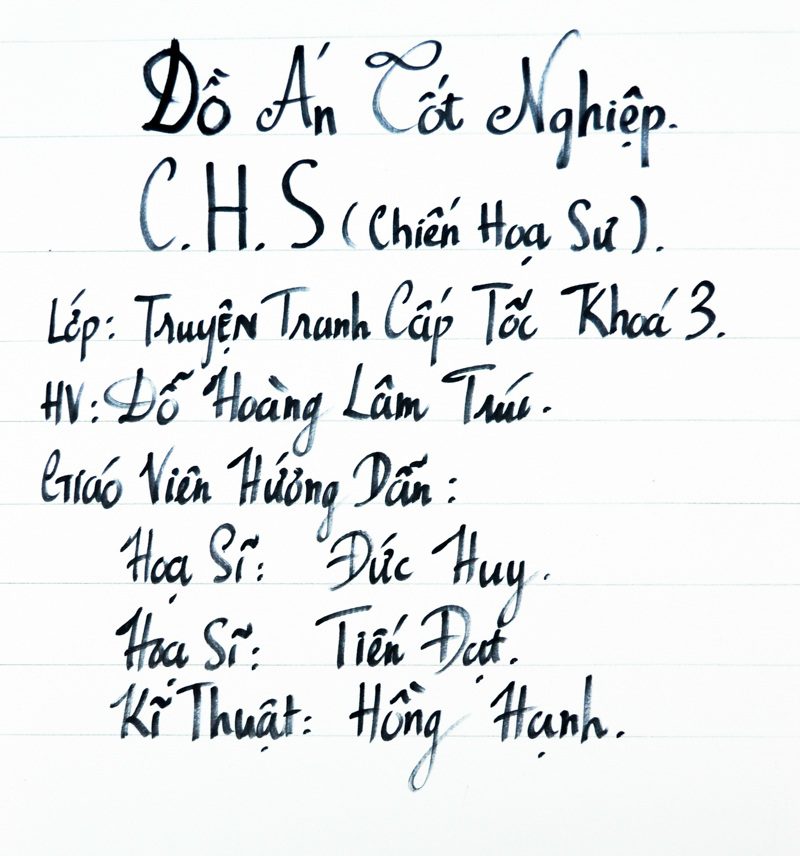 Đồ Án Tốt Nghiệp.
C.H.S (Chiến Hoạ Sư).
Lớp: Truyện Tranh Cấp Tốc Khoá 3.
HV: Đỗ Hoàng Lâm Trúc.
Giáo Viên Hướng Dẫn:
Hoạ Sĩ: Đức Huy.
Hoạ Sĩ: Tiến Đạt.
Kĩ Thuật: Hồng Hạnh.